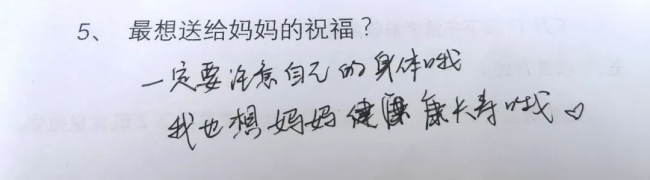 5、 最想送给妈妈的祝福？
一定要注意自己的身体哦
我也想妈妈健康长寿哦♡